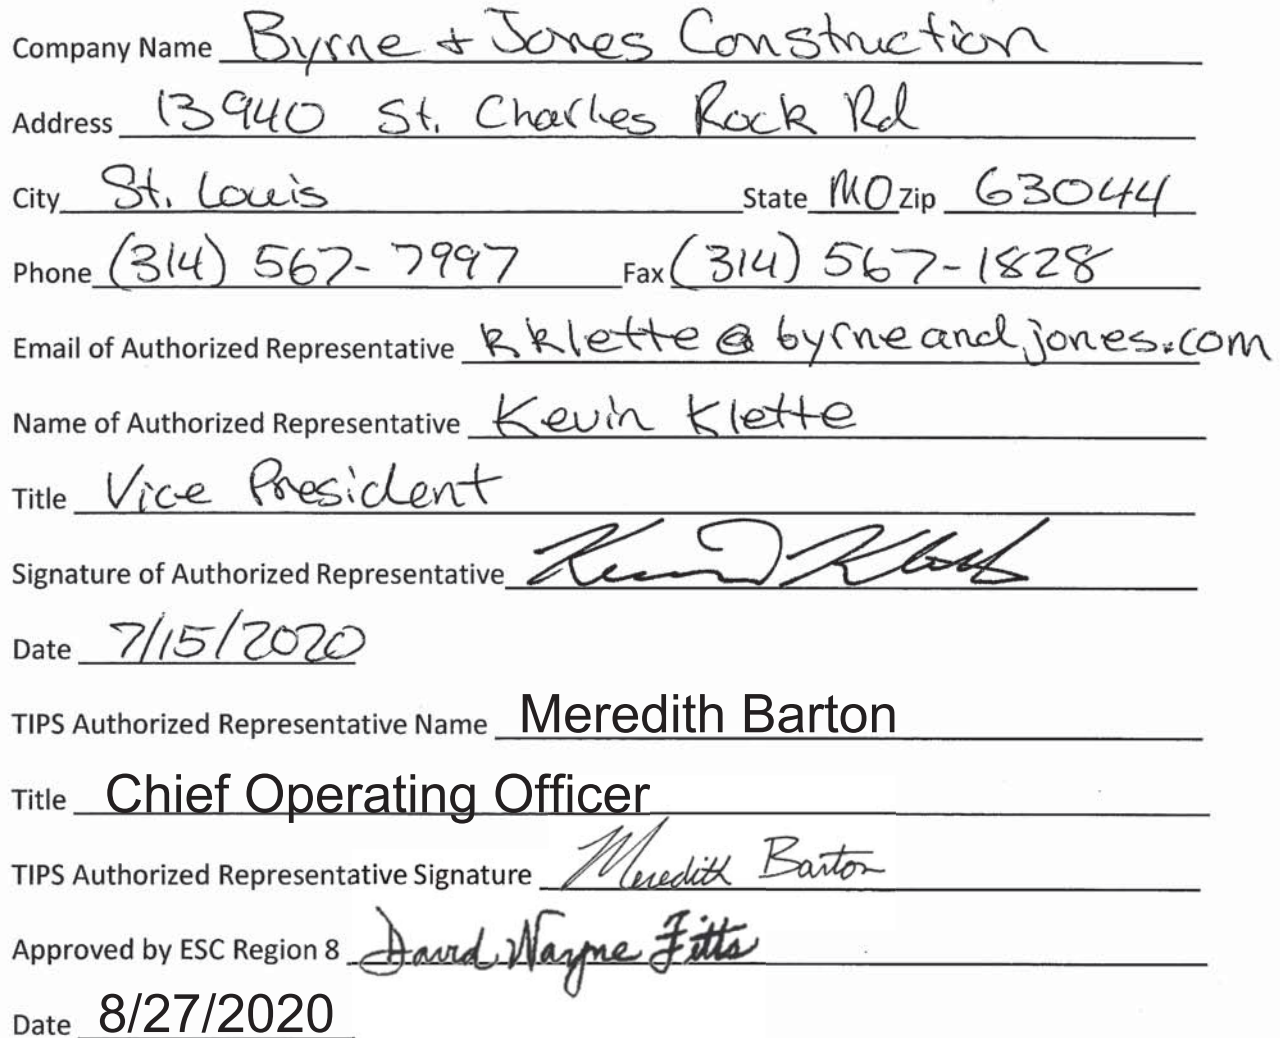 Company Name Byrne + Jones Construction
Address 13940 St. Charles Rock Rd
City St. Louis State MO Zip 63044
Phone (314) 567-7997 Fax (314) 567-1828
Email of Authorized Representative kklette@byrneandjones.com
Name of Authorized Representative Kevin Klette
Title Vice President
Signature of Authorized Representative
Date 7/15/2020
TIPS Authorized Representative Name Meredith Barton
Title Chief Operating Officer
TIPS Authorized Representative Signature Meredith Barton
Approved by ESC Region 8 David Wayne Fitts
Date 8/27/2020